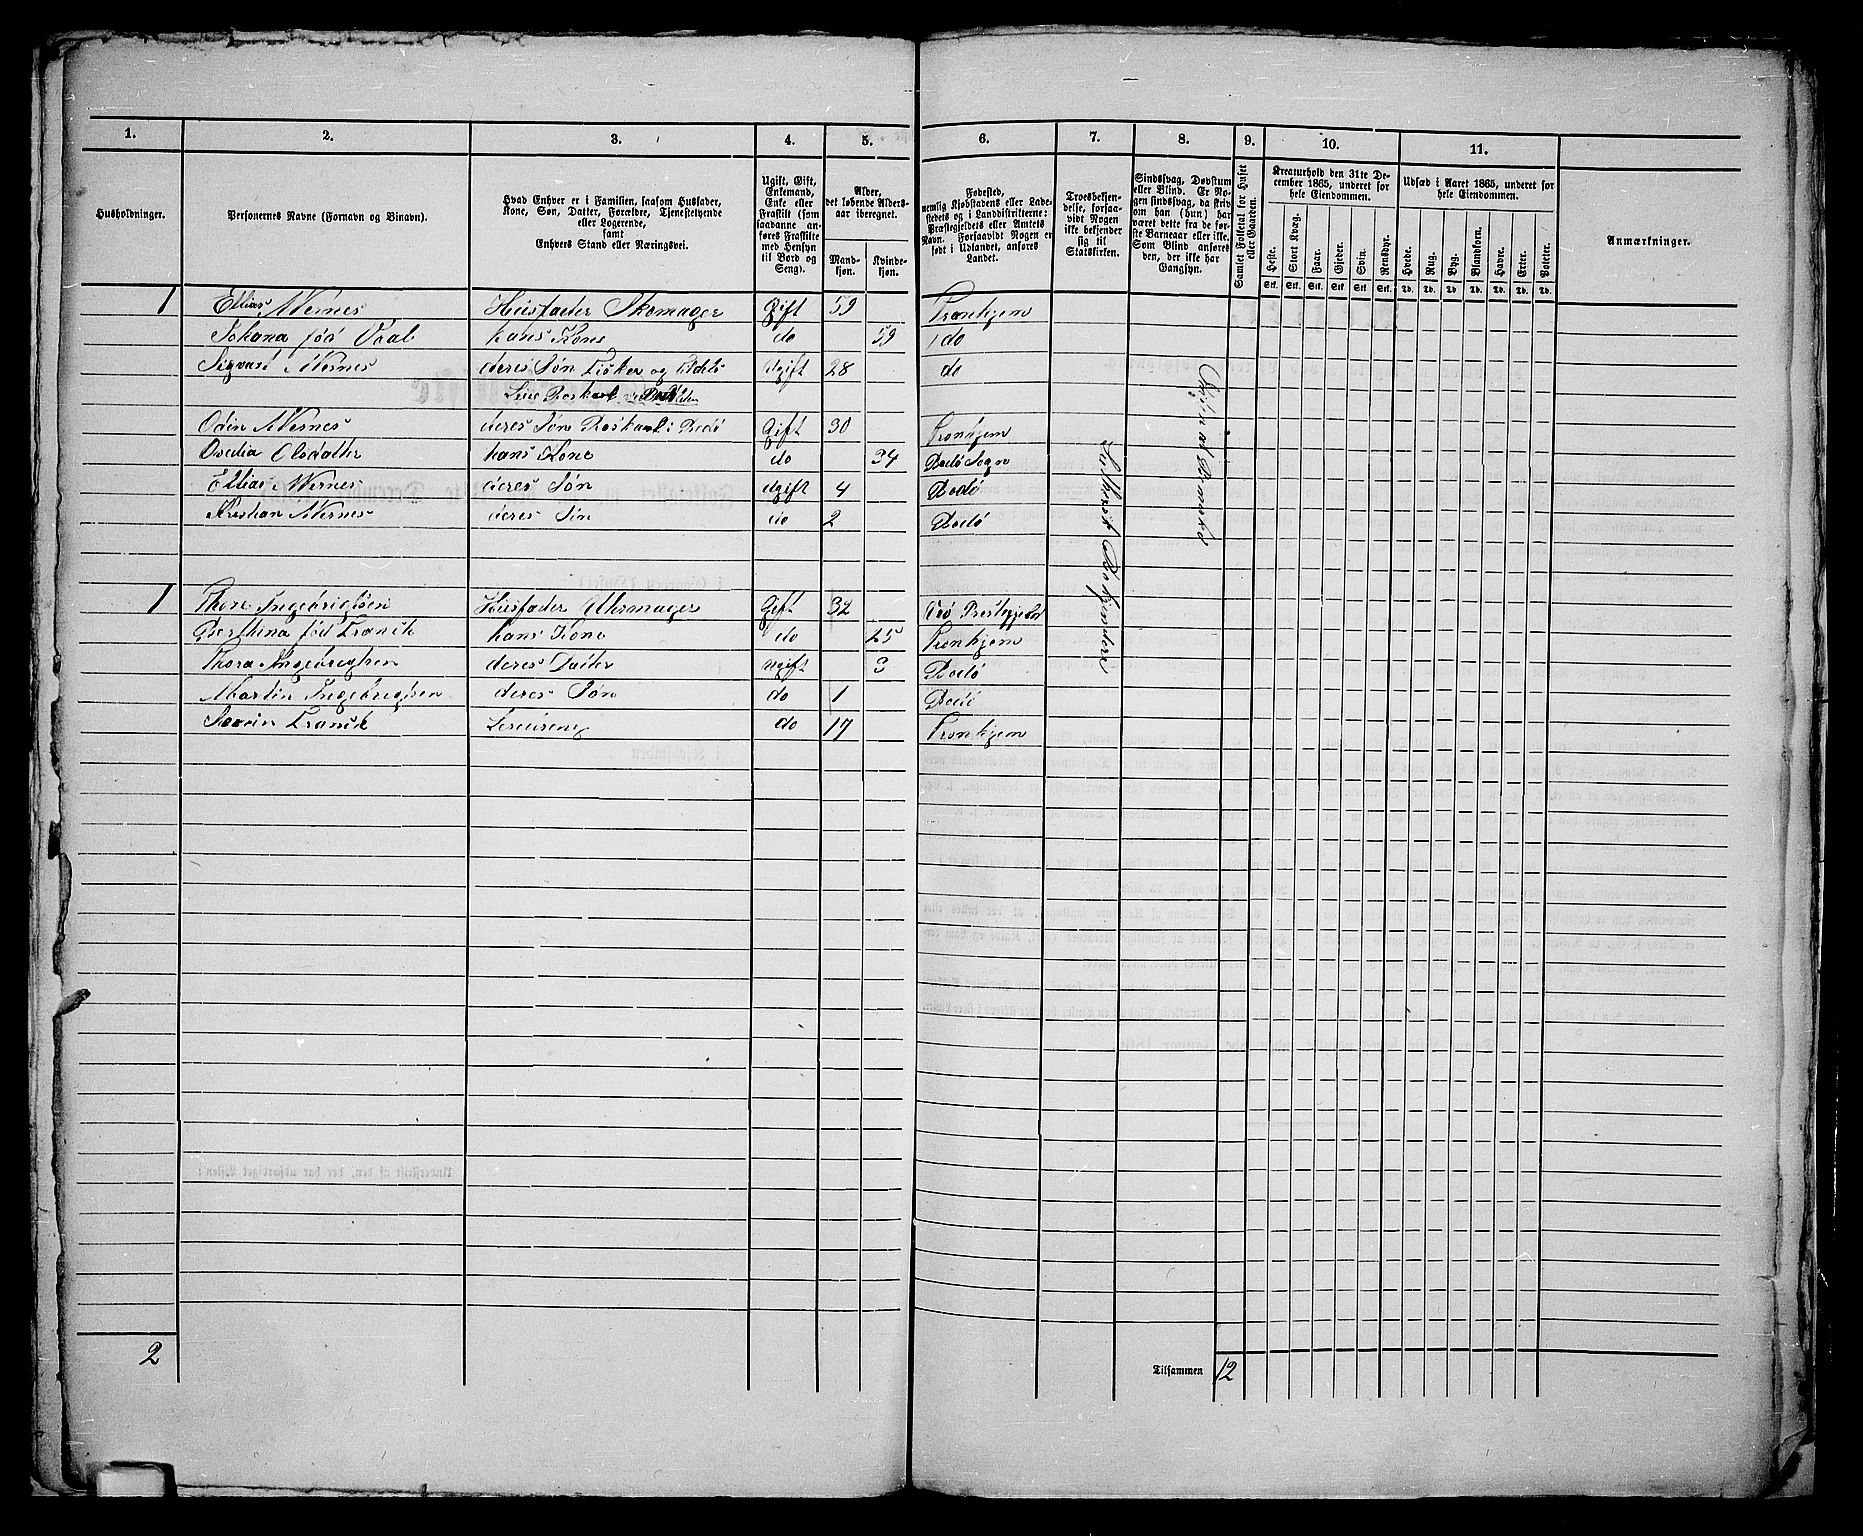 1. 2. 3. 4. 5. 6. 7. 8. 9. 10. 11.
Husholdninger.
Personernes Navne (Fornavn og Binavn).
Hvad Enhver er i Familien, saasom Husfader,
Kone, Søn, Datter, Forældre, Tjenestetyende
eller Logerende,
samt
Enhvers Stand eller Næringsvei.
Ugift, Gift,
Enkemand,
Enke eller
Fraskilt (som
saadanne an-
føres Fraskilte
med Hensyn
til Bord og
Seng).
Alder,
det løbende Alders-
aar iberegnet.
Mand-
kjøn.
Kvinde-
kjøn.
Fødested,
nemlig Kjøbstadens eller Lade-
stedets og i Landdistrikterne:
Præstegjeldets eller Amtets
Navn. Forsaavidt Nogen er
født i Udlandet, anføres
Landet.
Troesbekjen-
delse, forsaa-
vidt Nogen
ikke bekjender
sig til
Statskirken.
Sindssvag, Døvstum
eller Blind. Er No-
gen sindssvag, da skriv
om han (hun) har
været dette fra de før-
ste Barneaar eller ikke.
Som Blind anføres
den, der ikke har
Gangsyn.
Samlet Folketal for Huset
eller Gaarden.
Kreaturhold den 31te De-
cember 1865, underet for
hele Eiendommen.
Heste. Stort Kvæg. Faar. Gjeder. Svin. Rensdyr.
Stk. Stk. Stk. Stk. Stk. Stk.
Udsæd i Aaret 1865, underet for
hele Eiendommen.
Hvede. Rug. Byg. Blandkorn. Havre. Erter. Poteter.
Td. Td. Td. Td. Td. Td. Td.
Anmærkninger.
1 Ellias Mernes Husfader Skomager Gift 59 Tronhjem
Johana fød Vaal hans Kone do 59 do
Sigvart Mernes deres Søn Fisker og ugift 28 do
Odin Mernes deres Søn i Bodø Gift 30 Tronhjem
Olsdatter hans Kone do 34 Bodø Sogn
Ellias Mernes deres Søn ugift 4 Bodø
Kristian Mernes deres Søn do 2 Bodø
1 Thore Ingebrigtsen Husfader Uhrmager Gift 32
Berthina fød Tranck hans Kone do 25 Tronhjem
Thora Ingebrigtsen deres Datter ugift 3 Bodø
Martin Ingebrigtsen deres Søn do 1 Bodø
Tranck do 17 Tronhjem
2
Tilsammen 12